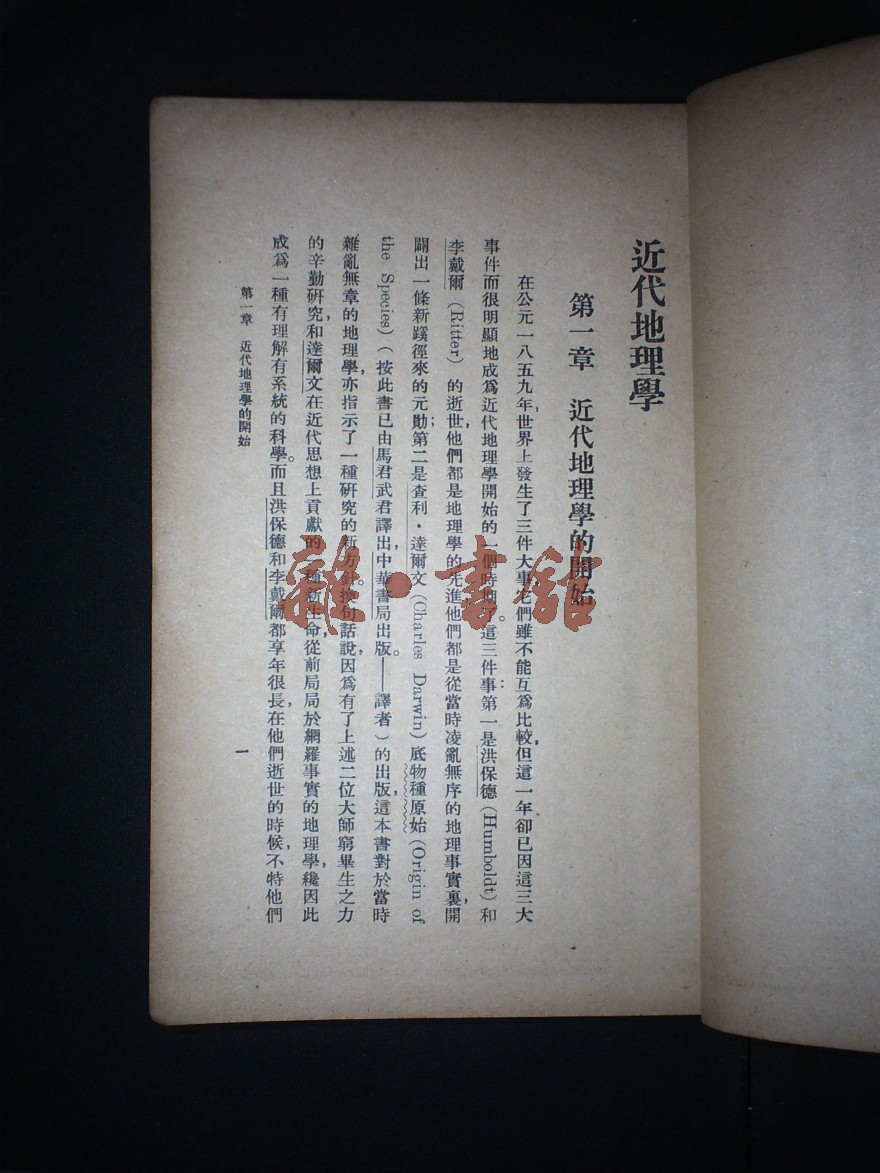 近代地理學
第一章　近代地理學的開始
在公元一八五九年，世界上發生了三件大事，它們雖不能互爲比較，但這一年卻已因這三大
事件而很明顯地成爲近代地理學開始的一個時期了。這三件事：第一是洪保德（Humboldt）和
李戴爾（Ritter）的逝世，他們都是地理學的先進他們都是從當時凌亂無序的地理事實裏，開
闢出一條新蹊徑來的元勛；第二是查利·達爾文（Charles Darwin）底物種原始（Origin of
the Species）（按此書已由馬君武君譯出，中華書局出版。——譯者）的出版，這本書對於當時
雜亂無章的地理學，亦指示了一種研究的新方針。換句話說，因爲有了上述二位大師窮畢生之力
的辛勤研究，和達爾文在近代思想上貢獻的一種新生命，從前局局於網羅事實的地理學，纔因此
成爲一種有理解有系統的科學。而且洪保德和李戴爾都享年很長，在他們逝世的時候，不特他們
第一章　近代地理學的開始
一
雜·書舘